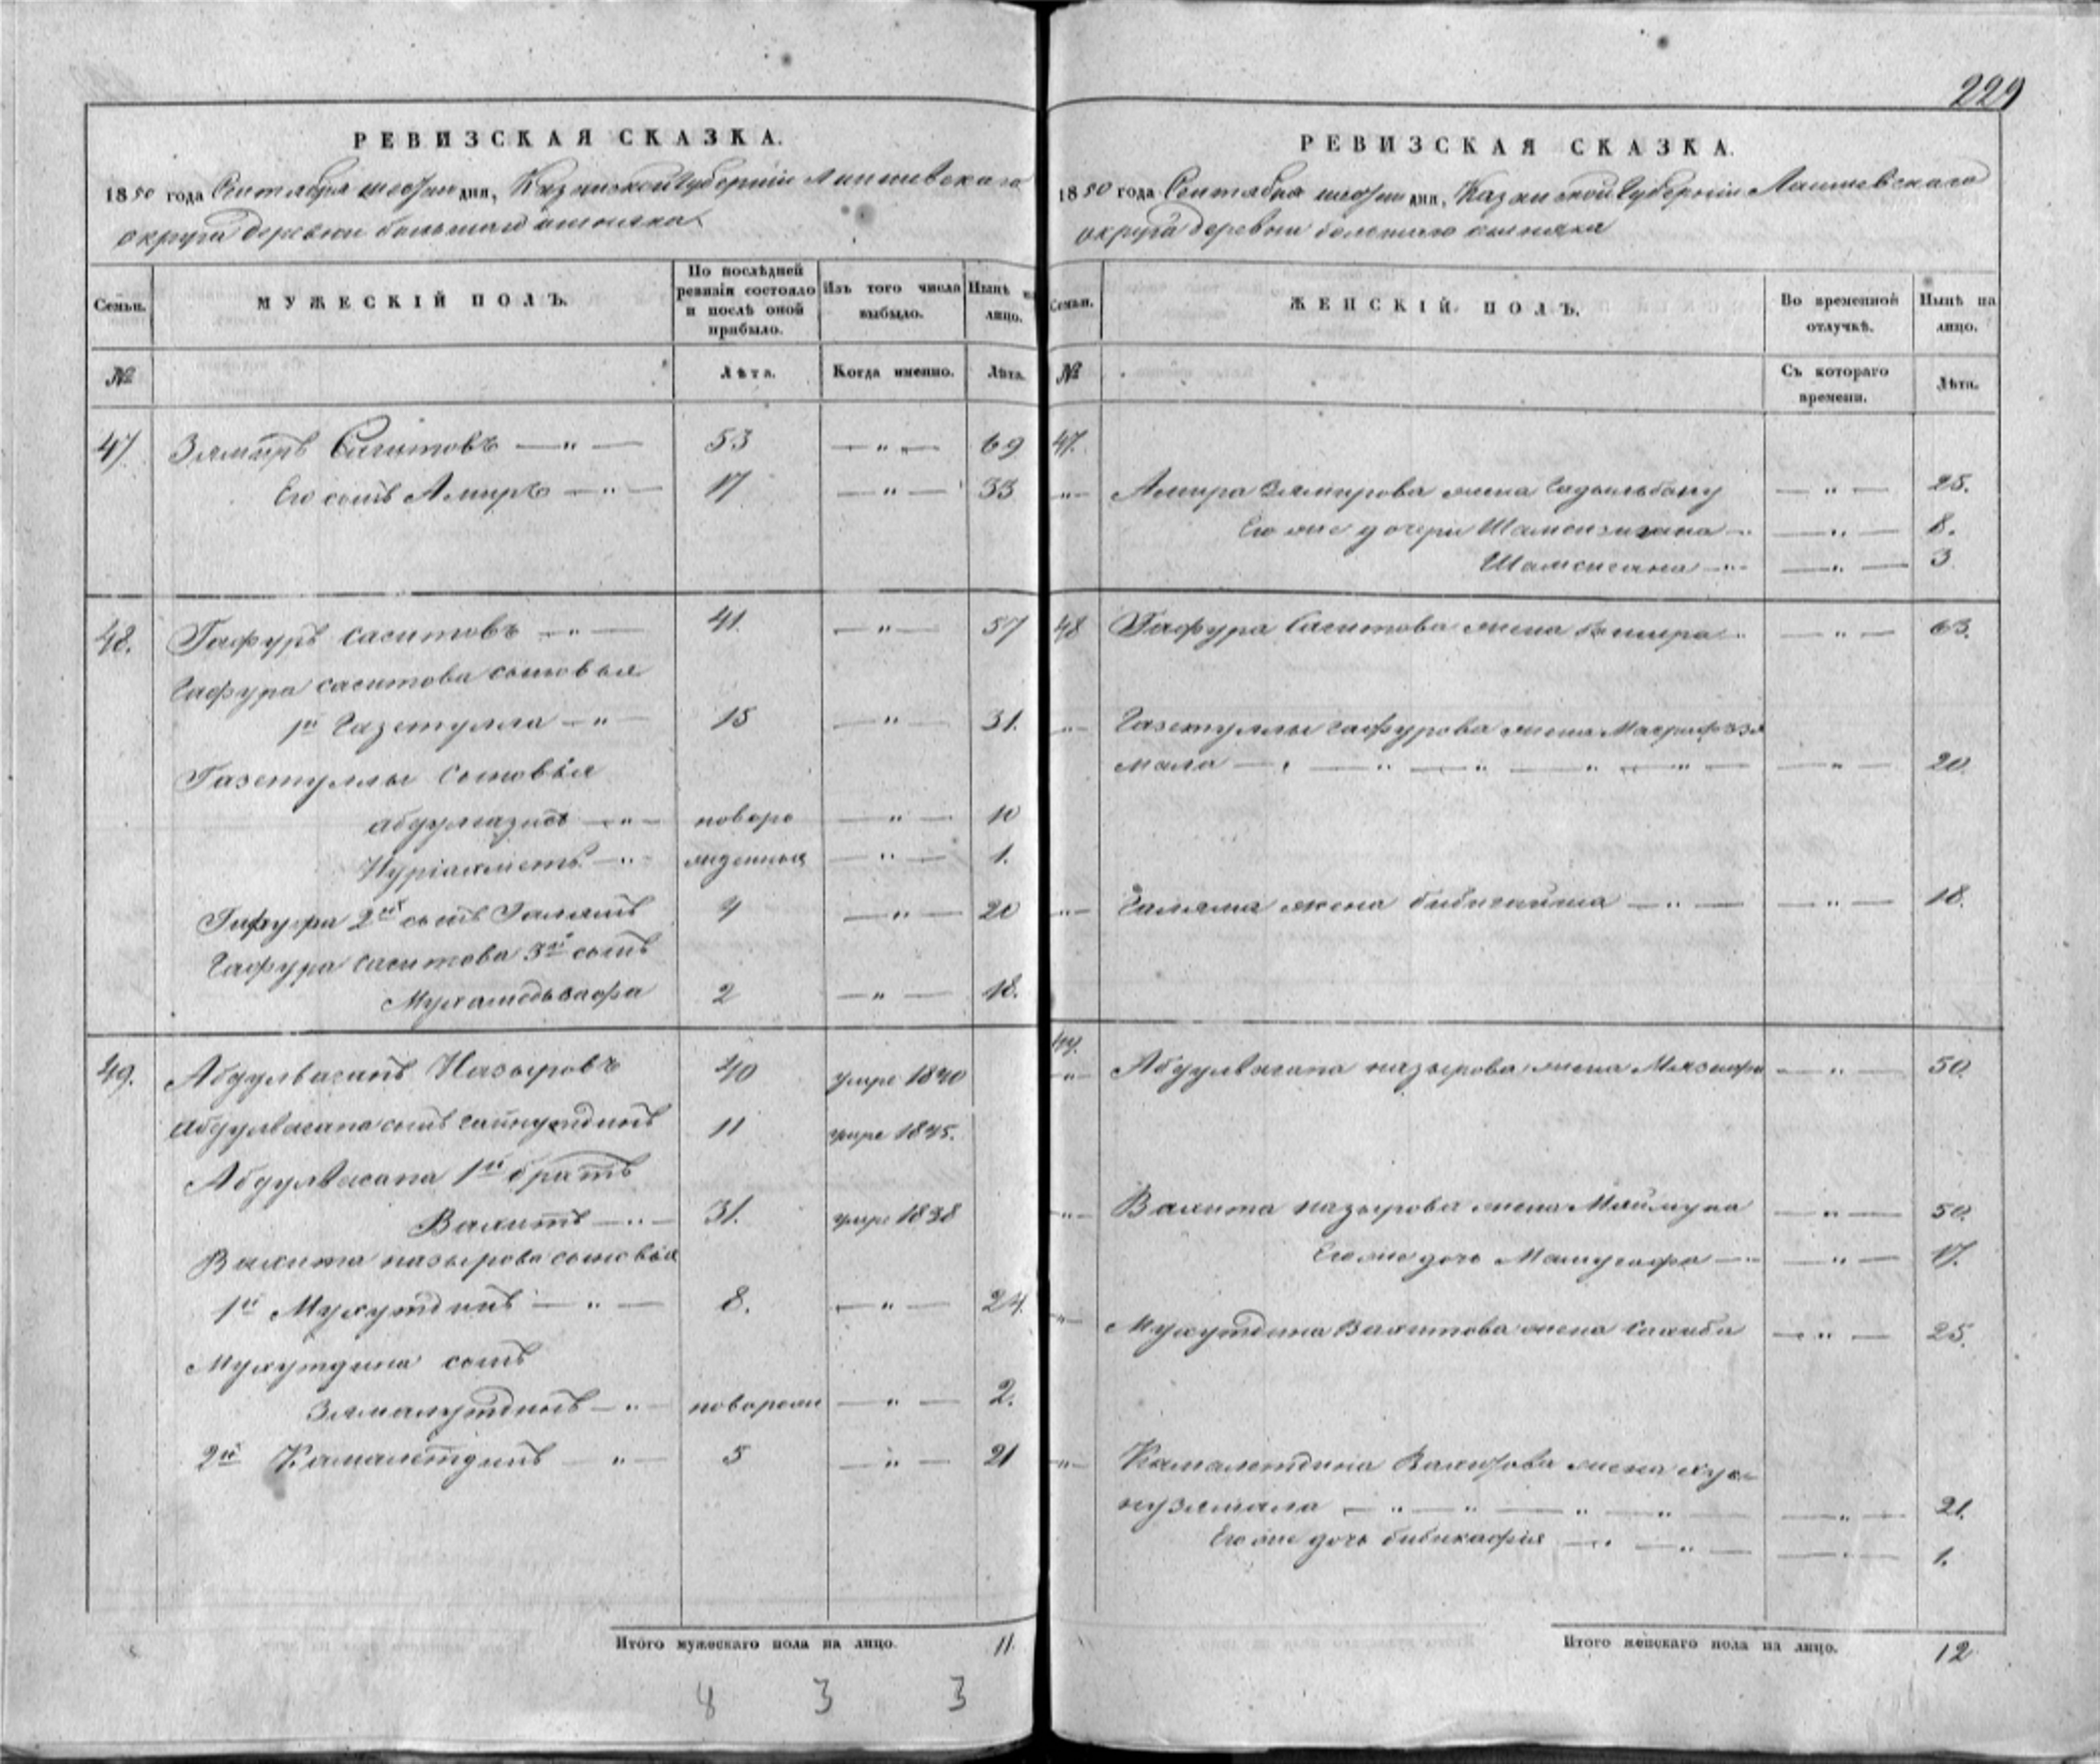 РЕВИЗСКАЯ СКАЗКА.
1850 года Сентября дня, Казанской Губерніи Лаишевскаго
округа деревни
Семьи.
МУЖЕСКІЙ ПОЛЪ.
По послѣдней ревизіи состояло и послѣ оной прибыло.
Изъ того числа выбыло.
Нынѣ на лицо.
№
Лѣта.
Когда именно.
Лѣта.
47 Замиръ Сагитовъ — " — 53 — " — 69
Его сынъ Амиръ — " — 17 — " — 33
48. Гафуръ сагитовъ — " — 41. — " — 57
Гафура сагитова сыновья
1й Газетулла — " — 15 — " — 31.
Газетуллы сыновья
абдулгазизъ — " — новоро — " — 10
Нуріахметъ — " — жденныя — " — 1.
Гафура 2й сынъ Галямъ 4 — " — 20
Гафура сагитова 3й сынъ
Мухамедьвафа 2 — " — 18.
49. Абдулвагапъ Назыровъ 40 умре 1840
Абдулвагапа сынъ гайнутдинъ 11 умре 1845.
Абдулвагапа 1й братъ
Вахитъ — " — 31. умре 1838
Вахита назырова сыновья
1й Мухутдинъ — " — 8. — " — 24.
Мухутдина сынъ
Замалутдинъ — " — новорож — " — 2.
2й Камалетдинъ — " — 5 — " — 21
Итого мужескаго пола на лицо. 11.
8 3 3
229
РЕВИЗСКАЯ СКАЗКА.
1850 года Сентября дня, Казанской Губерніи Лаишевскаго
округа деревни
Семьи.
ЖЕНСКІЙ ПОЛЪ.
Во временной отлучкѣ.
Нынѣ на лицо.
№
Съ котораго времени.
Лѣта.
47.
" Амира Замирова жена — " — 25.
Его же дочери — " — 8.
— " — 3
48 Гафура Сагитова жена — " — 63.
" Газетуллы гафурова жена
— " — 20
" Галяма жена — " — 18.
49.
" Абдулвагапа назырова жена — " — 50.
" Вахита назырова жена Маймуна — " — 50.
Его же дочь — " — 17.
" Мухутдина Вахитова жена сахиба — " — 25.
" Камалетдина Вахитова жена
— " — 21.
Его же дочь бибикафія — " — 1.
Итого женскаго пола на лицо. 12